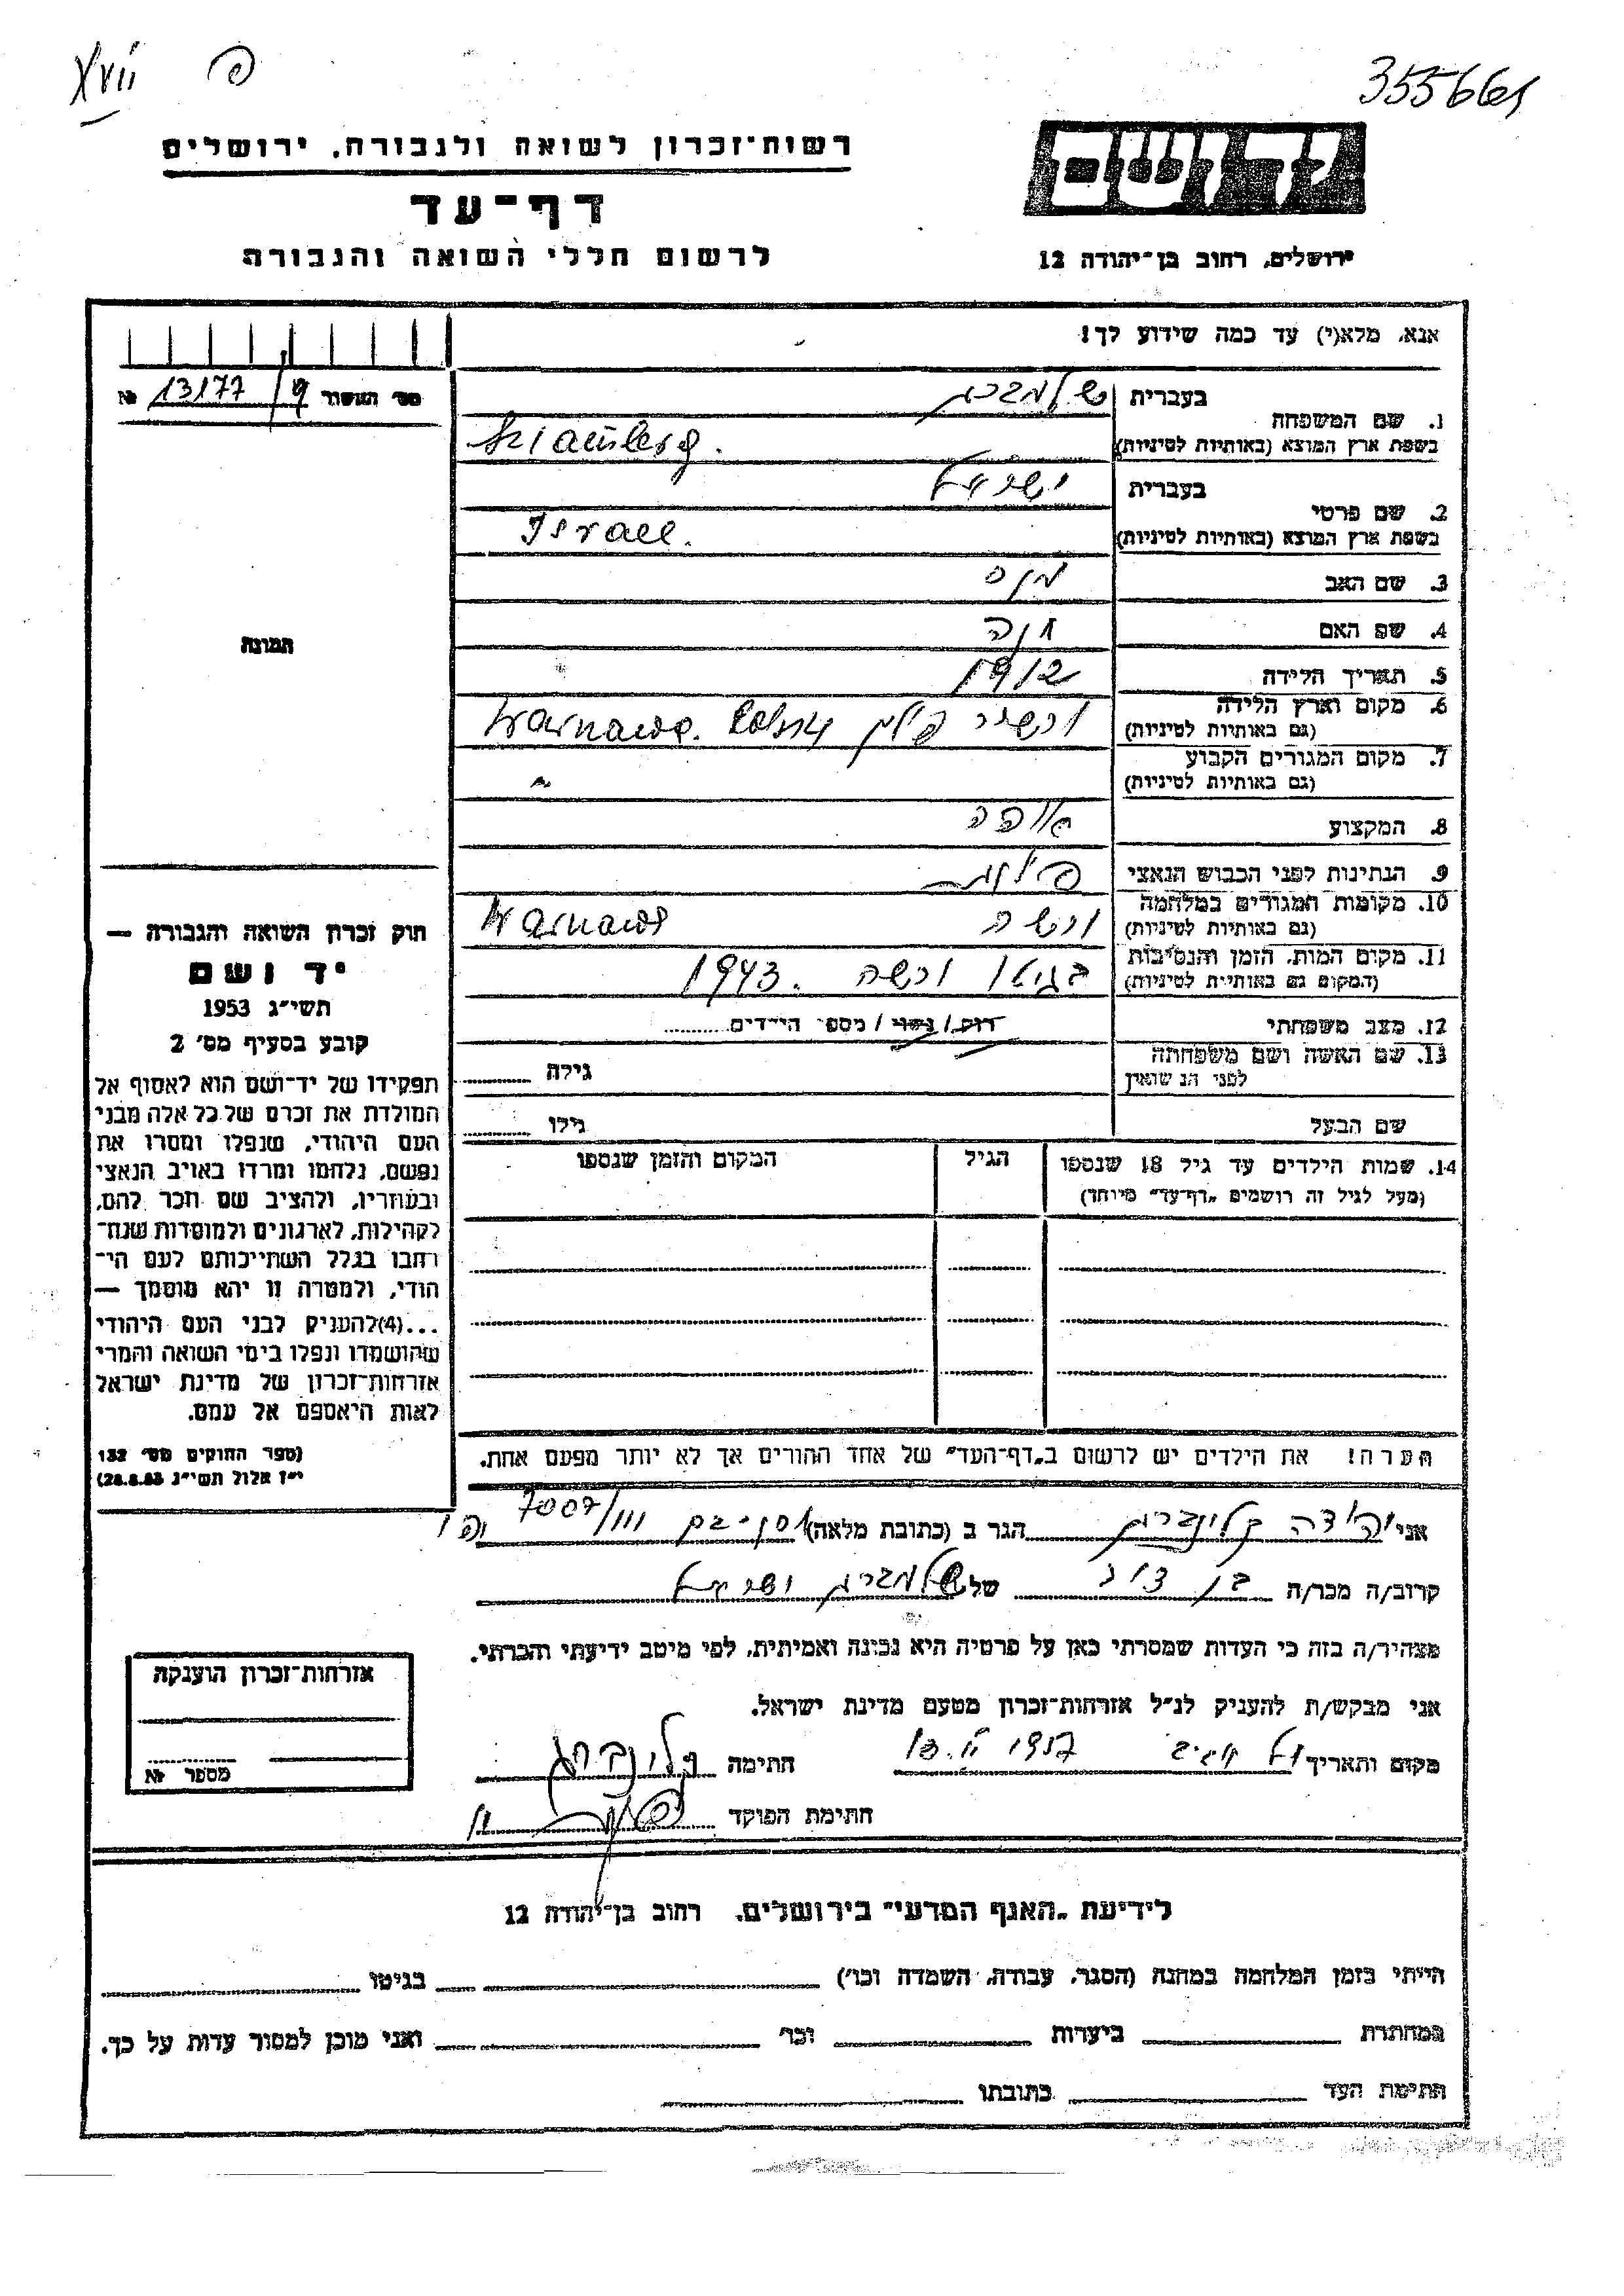 355661
רשות־זכרון לשואה ולגבורה, ירושלים
דף־עד
לרשום חללי השואה והגבורה
יד ושם
ירושלים, רחוב בן־יהודה 12
אנא, מלא(י) עד כמה שידוע לך!
13177/9 №
1. שם המשפחה
בעברית
שלמברג
בשפת ארץ המוצא (באותיות לטיניות)
2. שם פרטי
בעברית
ישראל
בשפת ארץ המוצא (באותיות לטיניות)
Israel.
3. שם האב
4. שם האם חנה
5. תאריך הלידה 1912
6. מקום וארץ הלידה
(גם באותיות לטיניות)
פולין
7. מקום המגורים הקבוע
(גם באותיות לטיניות)
8. המקצוע אופה
9. הנתינות לפני הכבוש הנאצי פולנית
10. מקומות המגורים במלחמה
(גם באותיות לטיניות)
ורשה
11. מקום המות, הזמן והנסיבות
(המקום גם באותיות לטיניות)
בגיטו ורשה. 1943
12. מצב משפחתי רוק / נשוי / מספר הילדים
13. שם האשה ושם משפחתה
לפני הנשואין
גילה
שם הבעל גילו
14. שמות הילדים עד גיל 18 שנספו
(מעל לגיל זה רושמים „דף־עד” מיוחד)
הגיל
המקום והזמן שנספו
הערה! את הילדים יש לרשום ב„דף־העד” של אחד ההורים אך לא יותר מפעם אחת.
התמונה
חוק זכרון השואה והגבורה —
יד ושם
תשי״ג 1953
קובע בסעיף מס׳ 2
תפקידו של יד־ושם הוא לאסוף אל
המולדת את זכרם של כל אלה מבני
העם היהודי, שנפלו ומסרו את
נפשם, נלחמו ומרדו באויב הנאצי
ובעוזריו, ולהציב שם וזכר להם,
לקהילות, לארגונים ולמוסדות שנח־
רחבו בגלל השתייכותם לעם הי־
הודי, ולמטרה זו יהא מוסמך —
...(4) להעניק לבני העם היהודי
שהושמדו ונפלו בימי השואה והמרי
אזרחות־זכרון של מדינת ישראל
לאות היאספם אל עמם.
(ספר החוקים מס׳ 132
י״ז אלול תשי״ג 28.8.53)
אני יהודה הגר ב (כתובת מלאה)
קרוב/ה מכר/ה בן דוד של שלמברג ישראל
מצהיר/ה בזה כי העדות שמסרתי כאן על פרטיה היא נכונה ואמיתית, לפי מיטב ידיעתי והכרתי.
אני מבקש/ת להעניק לנ״ל אזרחות־זכרון מטעם מדינת ישראל.
מקום ותאריך תל אביב חתימה
חתימת הפוקד
אזרחות־זכרון הוענקה
מספר №
לידיעת „האגף המדעי” בירושלים, רחוב בן־יהודה 12
הייתי בזמן המלחמה במחנה (הסגר, עבודה, השמדה וכו׳) בגיטו
במחתרת ביערות וכו׳ ואני מוכן למסור עדות על כך.
חתימת העד כתובתו